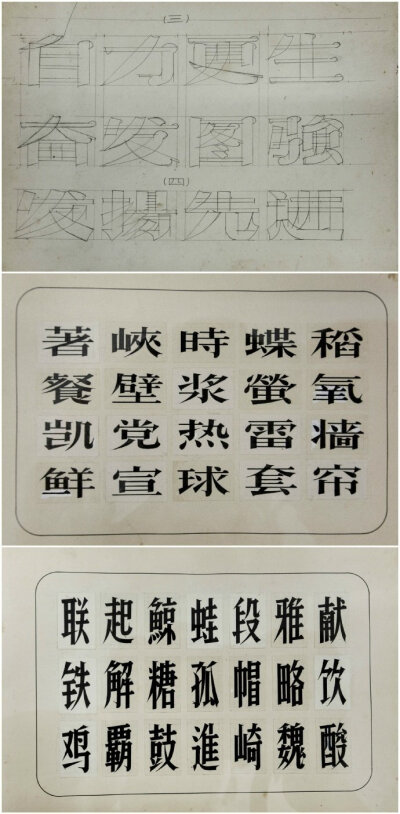 (三)
自力更生
奋发图強
(四)
发揚先进
著峽時蝶稻
餐壁浆螢氧
凯党热雷墙
鲜宣球套帘
联起鯨蛙段雅献
铁解糖孤帽略饮
鸡霸鼓進崎魏酸